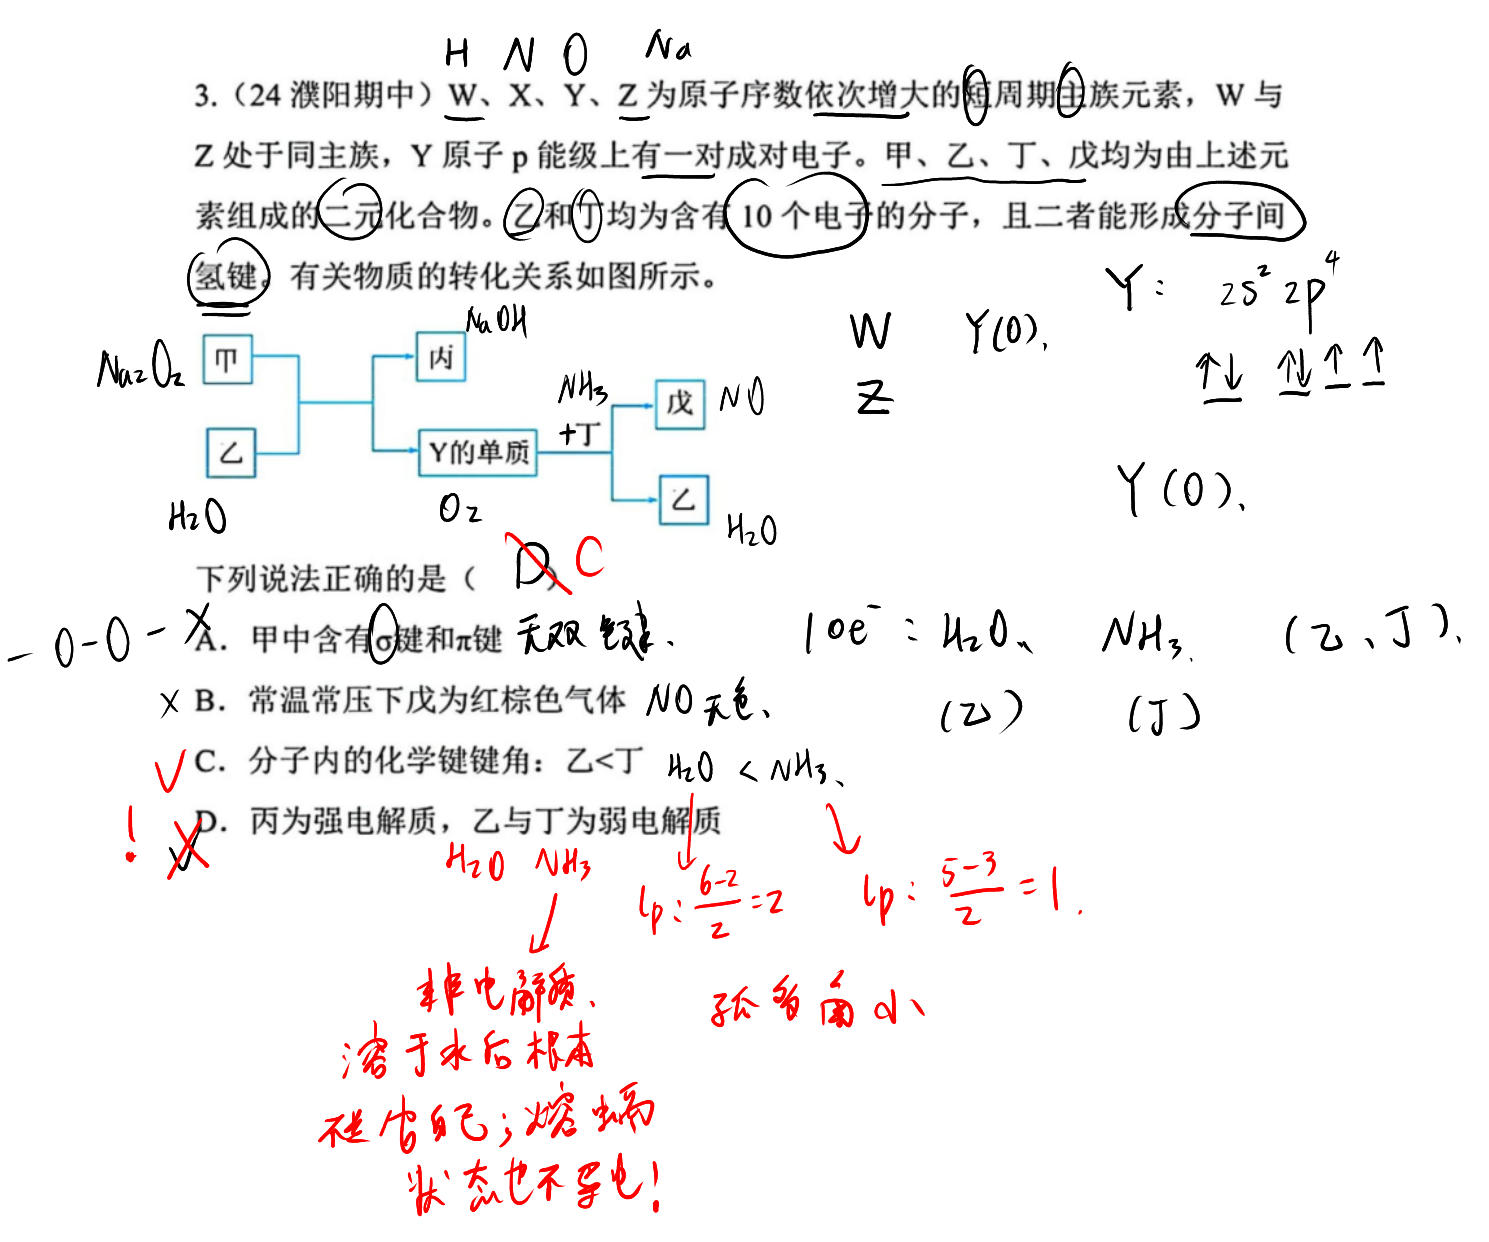 H N O Na
3.（24 濮阳期中）W、X、Y、Z 为原子序数依次增大的短周期主族元素，W 与
Z 处于同主族，Y 原子 p 能级上有一对成对电子。甲、乙、丁、戊均为由上述元
素组成的二元化合物。乙和丁均为含有 10 个电子的分子，且二者能形成分子间
氢键。有关物质的转化关系如图所示。
Y： 2s² 2p⁴
W Y(O)、
Z
↑↓ ↑↓ ↑ ↑
Y(O)、
NaOH
Na₂O₂ 甲 丙
NH₃ 戊 NO
+丁
乙 Y的单质 乙
H₂O O₂ H₂O
下列说法正确的是（ D ） C
-O-O- × A．甲中含有σ键和π键 无双键、
10e⁻：H₂O、 NH₃、 (乙、丁)、
× B．常温常压下戊为红棕色气体 NO无色、
(乙) (丁)
√ C．分子内的化学键键角：乙<丁 H₂O < NH₃、
! × D．丙为强电解质，乙与丁为弱电解质
H₂O NH₃
lp：(6-2)/2=2 lp：(5-3)/2=1．
非电解质、
孤多角小
溶于水后根本
不是自己；熔融
状态也不导电！